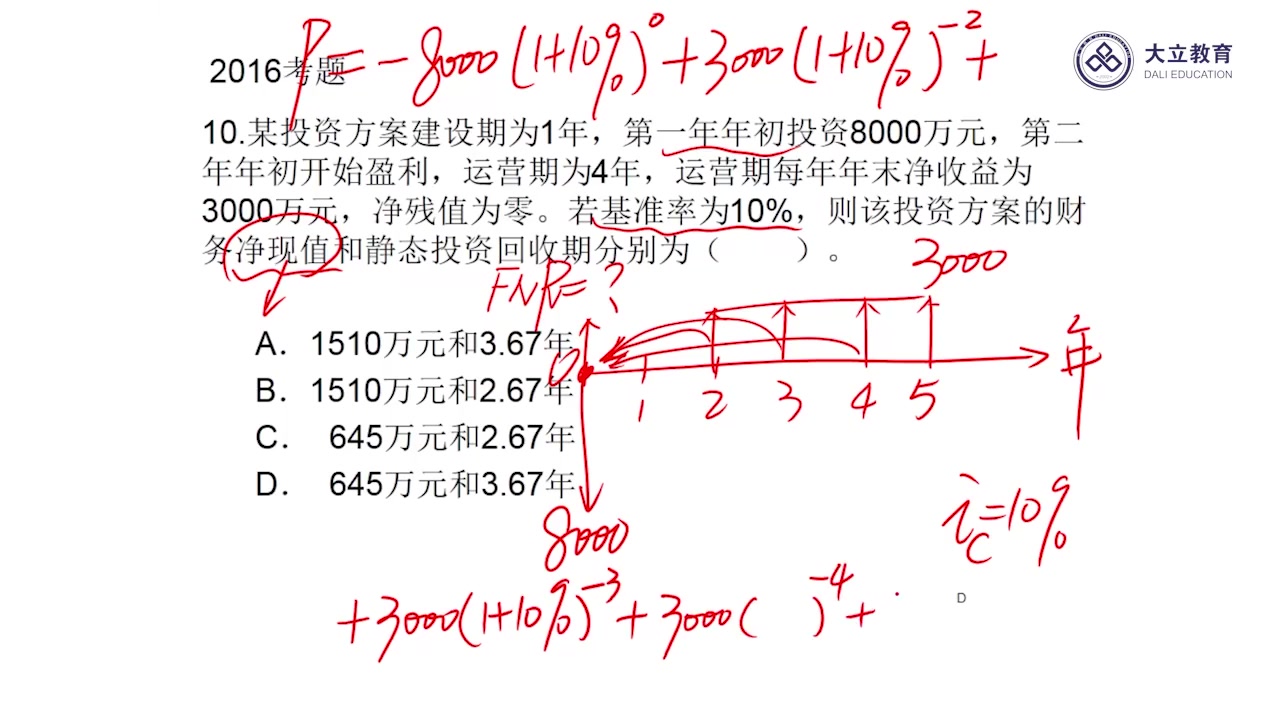 P=-8000(1+10%)⁰+3000(1+10%)⁻²+
大立教育
DALI EDUCATION
2016考题
10.某投资方案建设期为1年，第一年年初投资8000万元，第二
年年初开始盈利，运营期为4年，运营期每年年末净收益为
3000万元，净残值为零。若基准率为10%，则该投资方案的财
务净现值和静态投资回收期分别为（　　）。
3000
FNPV=?
A. 1510万元和3.67年
B. 1510万元和2.67年
C. 645万元和2.67年
D. 645万元和3.67年
0 1 2 3 4 5 年
8000
ic=10%
+3000(1+10%)⁻³+3000( )⁻⁴+
D